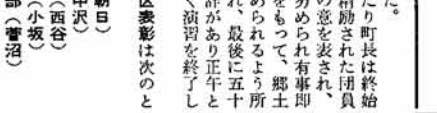 た。
たり町長は終始
精励された団員
の意を表され、
努められ有事即
をもって、郷土
められるよう所
れ、最後に五十
辞があり正午と
く演習を終了し
区表彰は次のと
朝日）
中沢）
（西谷）
（小坂）
部（菅沼）